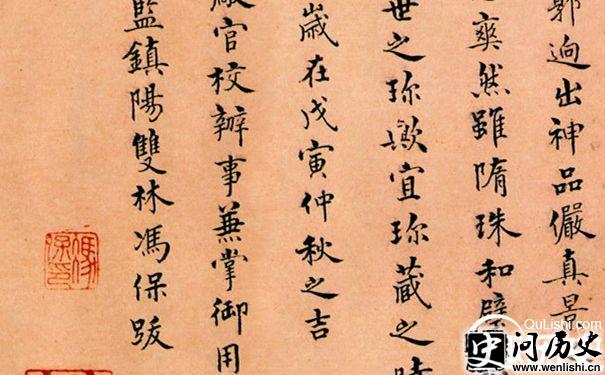 郭迥出神品儼真景
奕然雖隋珠和璧
世之珎歟宜珎藏之時
歲在戊寅仲秋之吉
廠官校辦事兼掌御用
監鎮陽雙林馮保跋
QuLishi.com
史问历史
www.wenlishi.cn